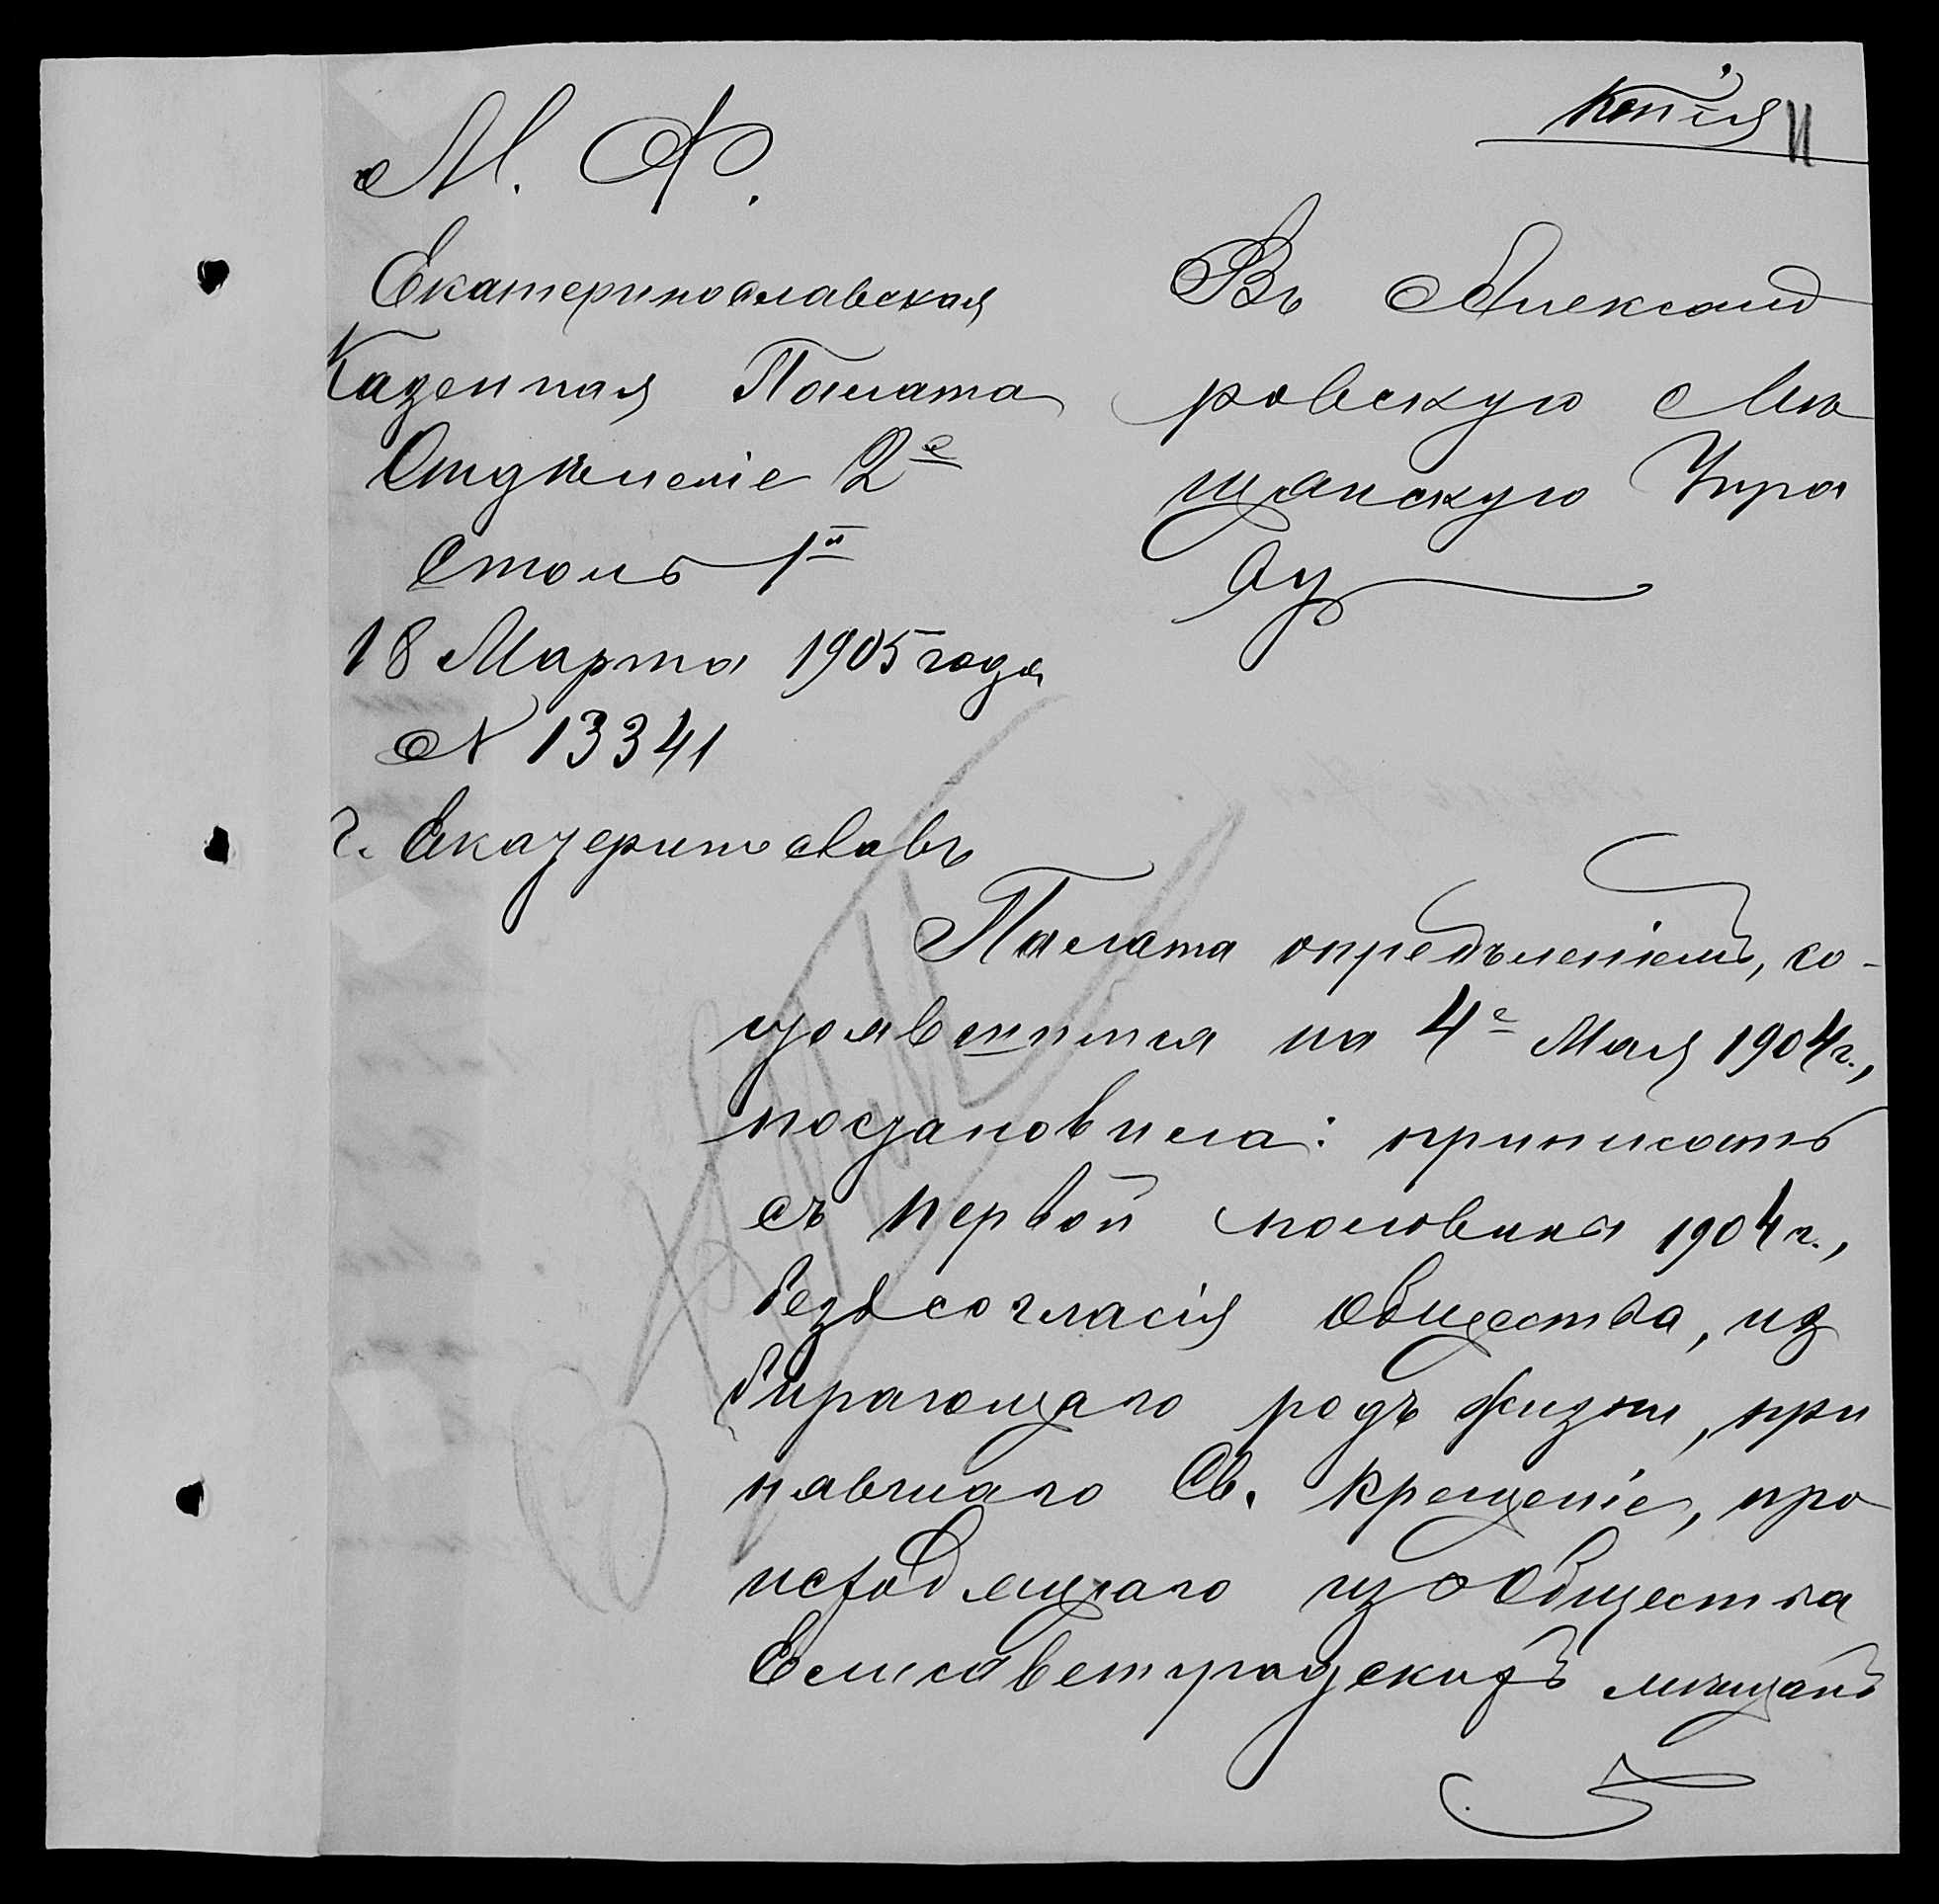 Копія
11
М. Ф.
Екатеринославская
Казенная Палата
Отдѣленіе 2е
Столъ 1й
18 Марта 1905 года
№ 13341
г. Екатеринославъ
Въ Александ
ровскую Мѣ
щанскую Упра
ву
Палата опредѣленіемъ, со-
стоявшимся на 4е Мая 1904 г.,
постановила: приписать
съ первой половины 1904 г.,
безъ согласія общества, из
бирающаго родъ жизни, при
нявшаго Св. Крещеніе, про
исходящаго изъ общества
Елисаветградскихъ мѣщанъ